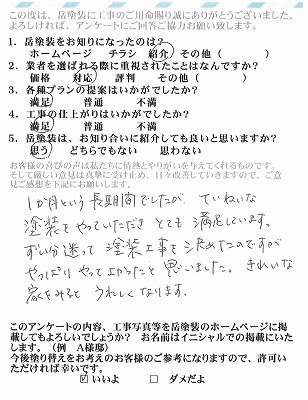 この度は、岳塗装に工事のご用命賜り誠にありがとうございました。
よろしければ、アンケートにご回答ご協力お願い致します。
1．岳塗装をお知りになったのは？
ホームページ　チラシ　紹介　その他（　　　　）
2．業者を選ばれる際に重視されたことはなんですか？
価格　対応　評判　その他（　　　　）
3．各種プランの提案はいかがでしたか？
満足　普通　不満
4．工事の仕上がりはいかがでしたか？
満足　普通　不満
5．岳塗装は、お知り合いに紹介しても良いと思いますか？
思う　どちらでもない　思わない
お客様の喜びの声は私たちに情熱とやりがいを与えてくれるものです。
そして厳しい意見は真摯に受け止め、日々改善していきますので、ご意
見ご感想を下記にお願いします。
1か月という長期間でしたが ていねいな
塗装をやっていただき とても満足しています。
ずい分迷って 塗装工事を決めたのですが
やっぱりやってよかったと思いました。きれいな
家をみると うれしくなります。
このアンケートの内容、工事写真等を岳塗装のホームページに掲
載してもよろしいでしょうか？　お名前はイニシャルでの掲載にいた
します。（例　A様邸）
今後塗り替えをお考えのお客様のご参考になりますので、許可い
ただければ幸いです。
☑ いいよ　□ ダメだよ